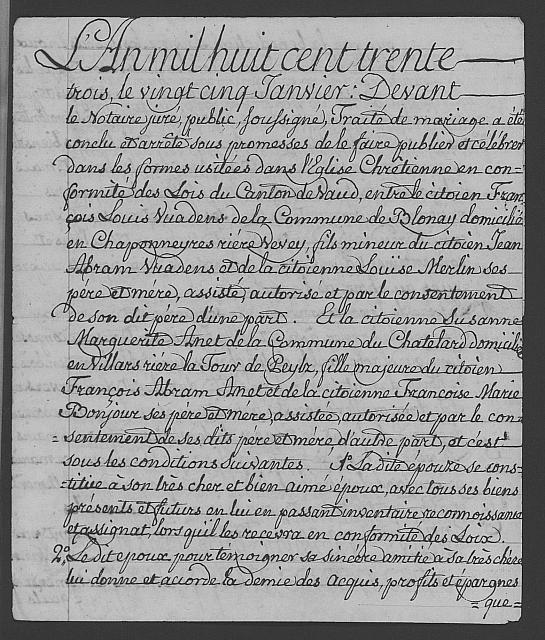 L'An mil huit cent trente
trois, le vingt cinq Janvier: Devant
le Notaire juré, public, soussigné, Traité de mariage a été
conclu et arrêté sous promesses de le faire publier et célébrer
dans les formes usitées dans l'Eglise Chrêtienne en con-
formité des Lois du Canton de Vaud, entre le citoien Fran
çois Louis Vuadens de la Commune de Blonay domicilié
en Chaponneyres riére Vevey, fils mineur du citoien Jean
Abram Vuadens et de la citoienne Louïse Merlin ses
pére et mére, assisté, autorisé et par le consentement
de son dit pére d'une part. Et la citoienne Susanne
Marguerite Anet de la Commune du Chatelard domicilié
en Villars riére la Tour de Peylz, fille majeure du citoien
François Abram Anet et de la citoienne Francoise Marie
Bonjour ses pére et mére, assistée, autorisée et par le con
=sentement de ses dits pére et mére d'autre part, et c'est
sous les conditions suivantes. 1º La dite épouze se cons-
=titue à son très cher et bien aimé époux, avec tous ses biens
présents et futurs en lui en passant inventaire reconnoissance
et assignat, lors qu'il les recevra en conformité des Loix.
2º, Le dit epoux pour temoigner sa sincére amitié a sa très chère
lui donne et acorde la demie des Acquis, profits et épargnes
=que=